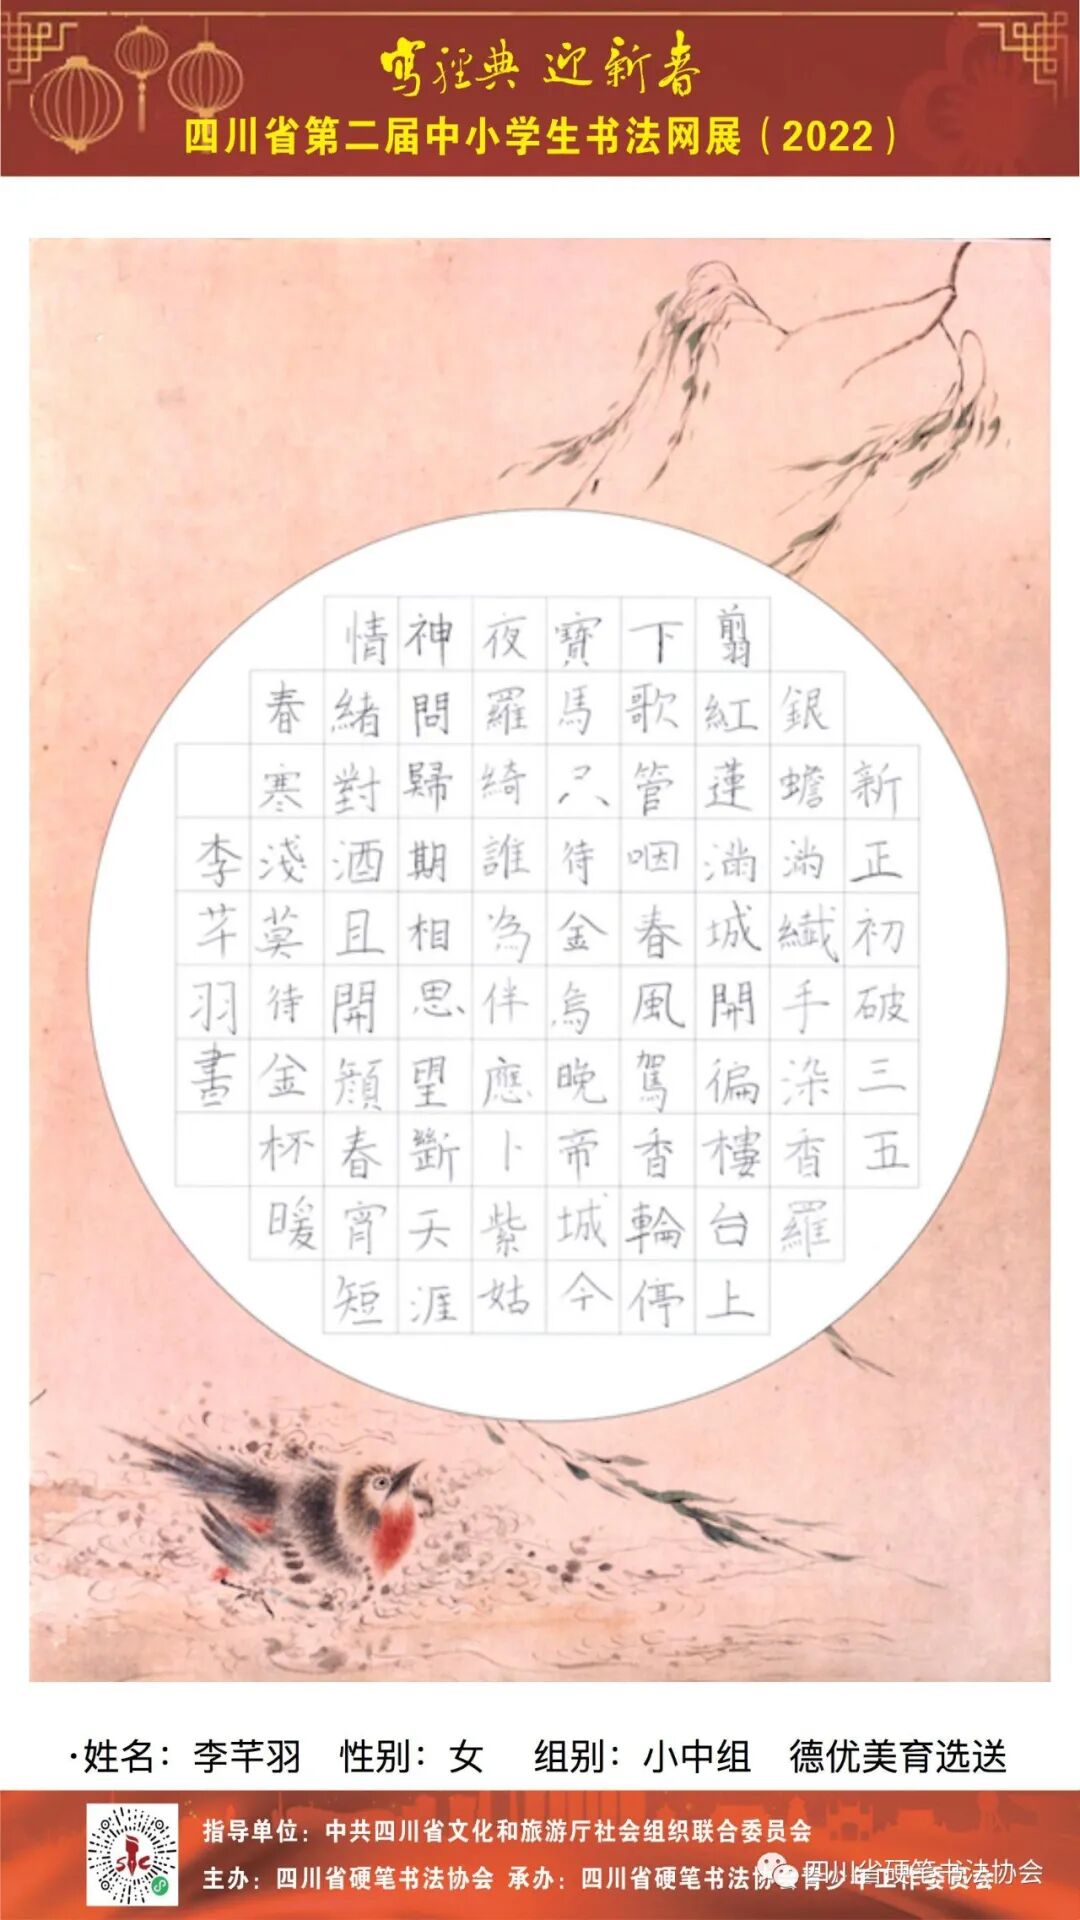 写经典 迎新春
四川省第二届中小学生书法网展（2022）
新正初破三五
銀蟾滿纖手染香羅
翦紅蓮滿城開徧樓台上
下歌管咽春風駕香輪停
寶馬只待金烏晚帝城今
夜羅綺誰為伴應卜紫姑
神問歸期相思望斷天涯
情緒對酒且開顏春宵短
春寒淺莫待金杯暖
李芊羽書
·姓名：李芊羽 性别：女 组别：小中组 德优美育选送
指导单位：中共四川省文化和旅游厅社会组织联合委员会
主办：四川省硬笔书法协会 承办：四川省硬笔书法协会青少年工作委员会
四川省硬笔书法协会